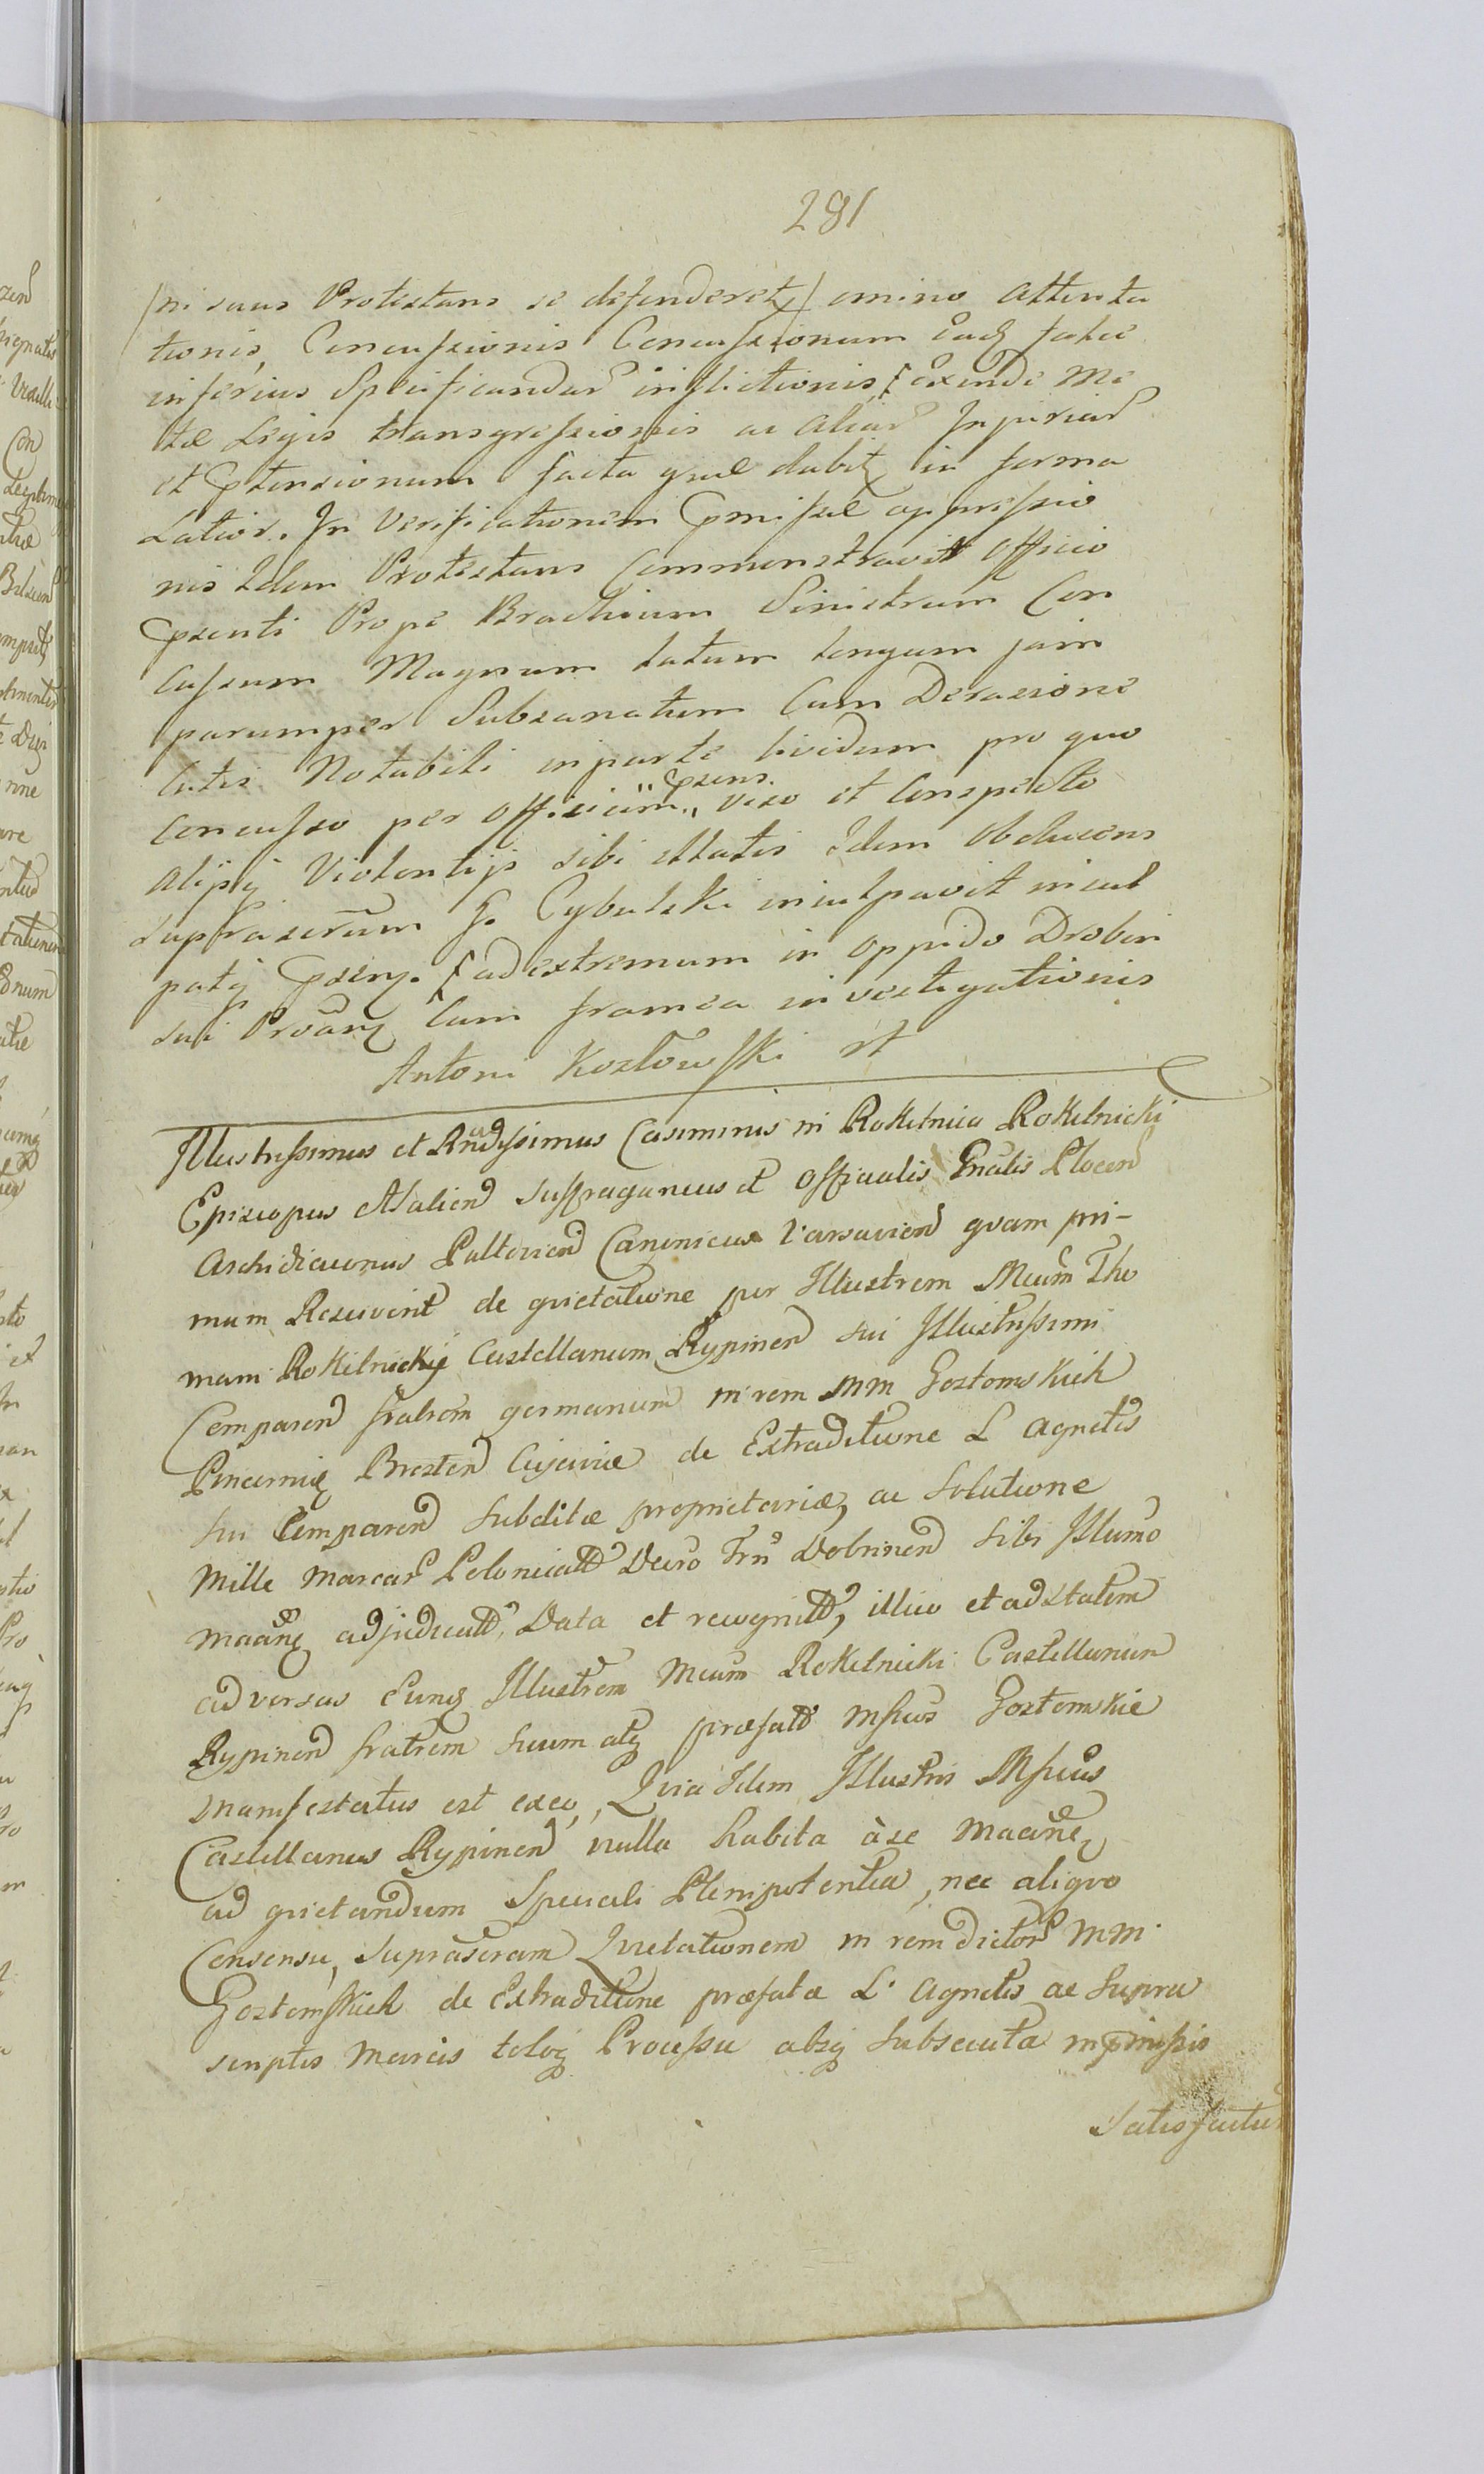 281
/ni suus Protestans se defenderet/ omino attenta
tionis, Concussionis Concussionum
inferius Specificandar inflictionis, exinde Me
tæ Legis transgressionis ac aliar Injuriar
et Ptensionum facta quæ dabit in forma
Latior. In Verificationem Pmissæ oppressio
nis Idem Protestans Commonstravit Officio
Psenti Prope Brachium Sinistrum Con
cussum Magnum latum longum jam
parumper Subsanatum Cum Derasione
Cutis Notabili inparte lividum pro quo
Concusso per Officium Psens viso et Conspecto
alijsq Violentijs sibi illatis Idem Obducens
Suprascrum G. Cybulski inculpavit incul
patq Psenz. ad extremum in oppido Drobin
sui Proanz Cum framea investigationis
Antoni Kozłowski
Illustrissimus et Rndissimus Casimirus in Rokitnica Rokitnicki
Episcopus Suffraganeus et Officialis Gnalis Plocen
Archidiaconus Pultovien Canonicus Varsavien quam pri-
mum Resciverit de quietatione per Illustrem Mcum Tho
mam Rokitnicki Castellanum Rypinen sui Illustrissimi
Comparen fratrem germanum in rem MM Gostomskich
Pincerniæ Bresten Cujaviæ de Extraditione L Agnetis
sui Comparen Subditæ proprietariæ, ac Solutione
Mille Marcar Polonicall Decro Trii Dobrinen Sibi Illumo
Maane adjudicatt, Data et recognitt, illico et ad Statim
adversus Eunq Illustrem Mcum Rokitnicki Castellanum
Rypinen fratrem suum atq præfatt Mficos Gostomskie
Manifestatus est exeo, Quia Idem Illustris Mficus
Castellanus Rypinen nulla habita à se Maane
ad quietandum Speciali Plenipotentia, nec aliquo
Consensu, Suprascram Quietationem in rem dictor MM
Gostomskich de Extraditione præfatæ L. Agnetis ac Supra
scriptis Marcis totoq Processu absq Subsecuta in Pmissis
Satisfactu